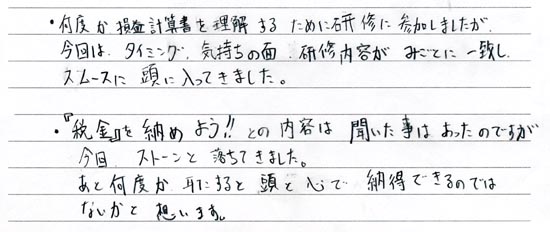 ・何度か損益計算書を理解するために研修に参加しましたが、
今回は、タイミング、気持ちの面、研修内容がみごとに一致し、
スムースに頭に入ってきました。
・『税金』を納めよう!! との内容は聞いた事はあったのですが
今回、ストーンと落ちてきました。
あと何度か耳にすると頭と心で納得できるのでは
ないかと想います。